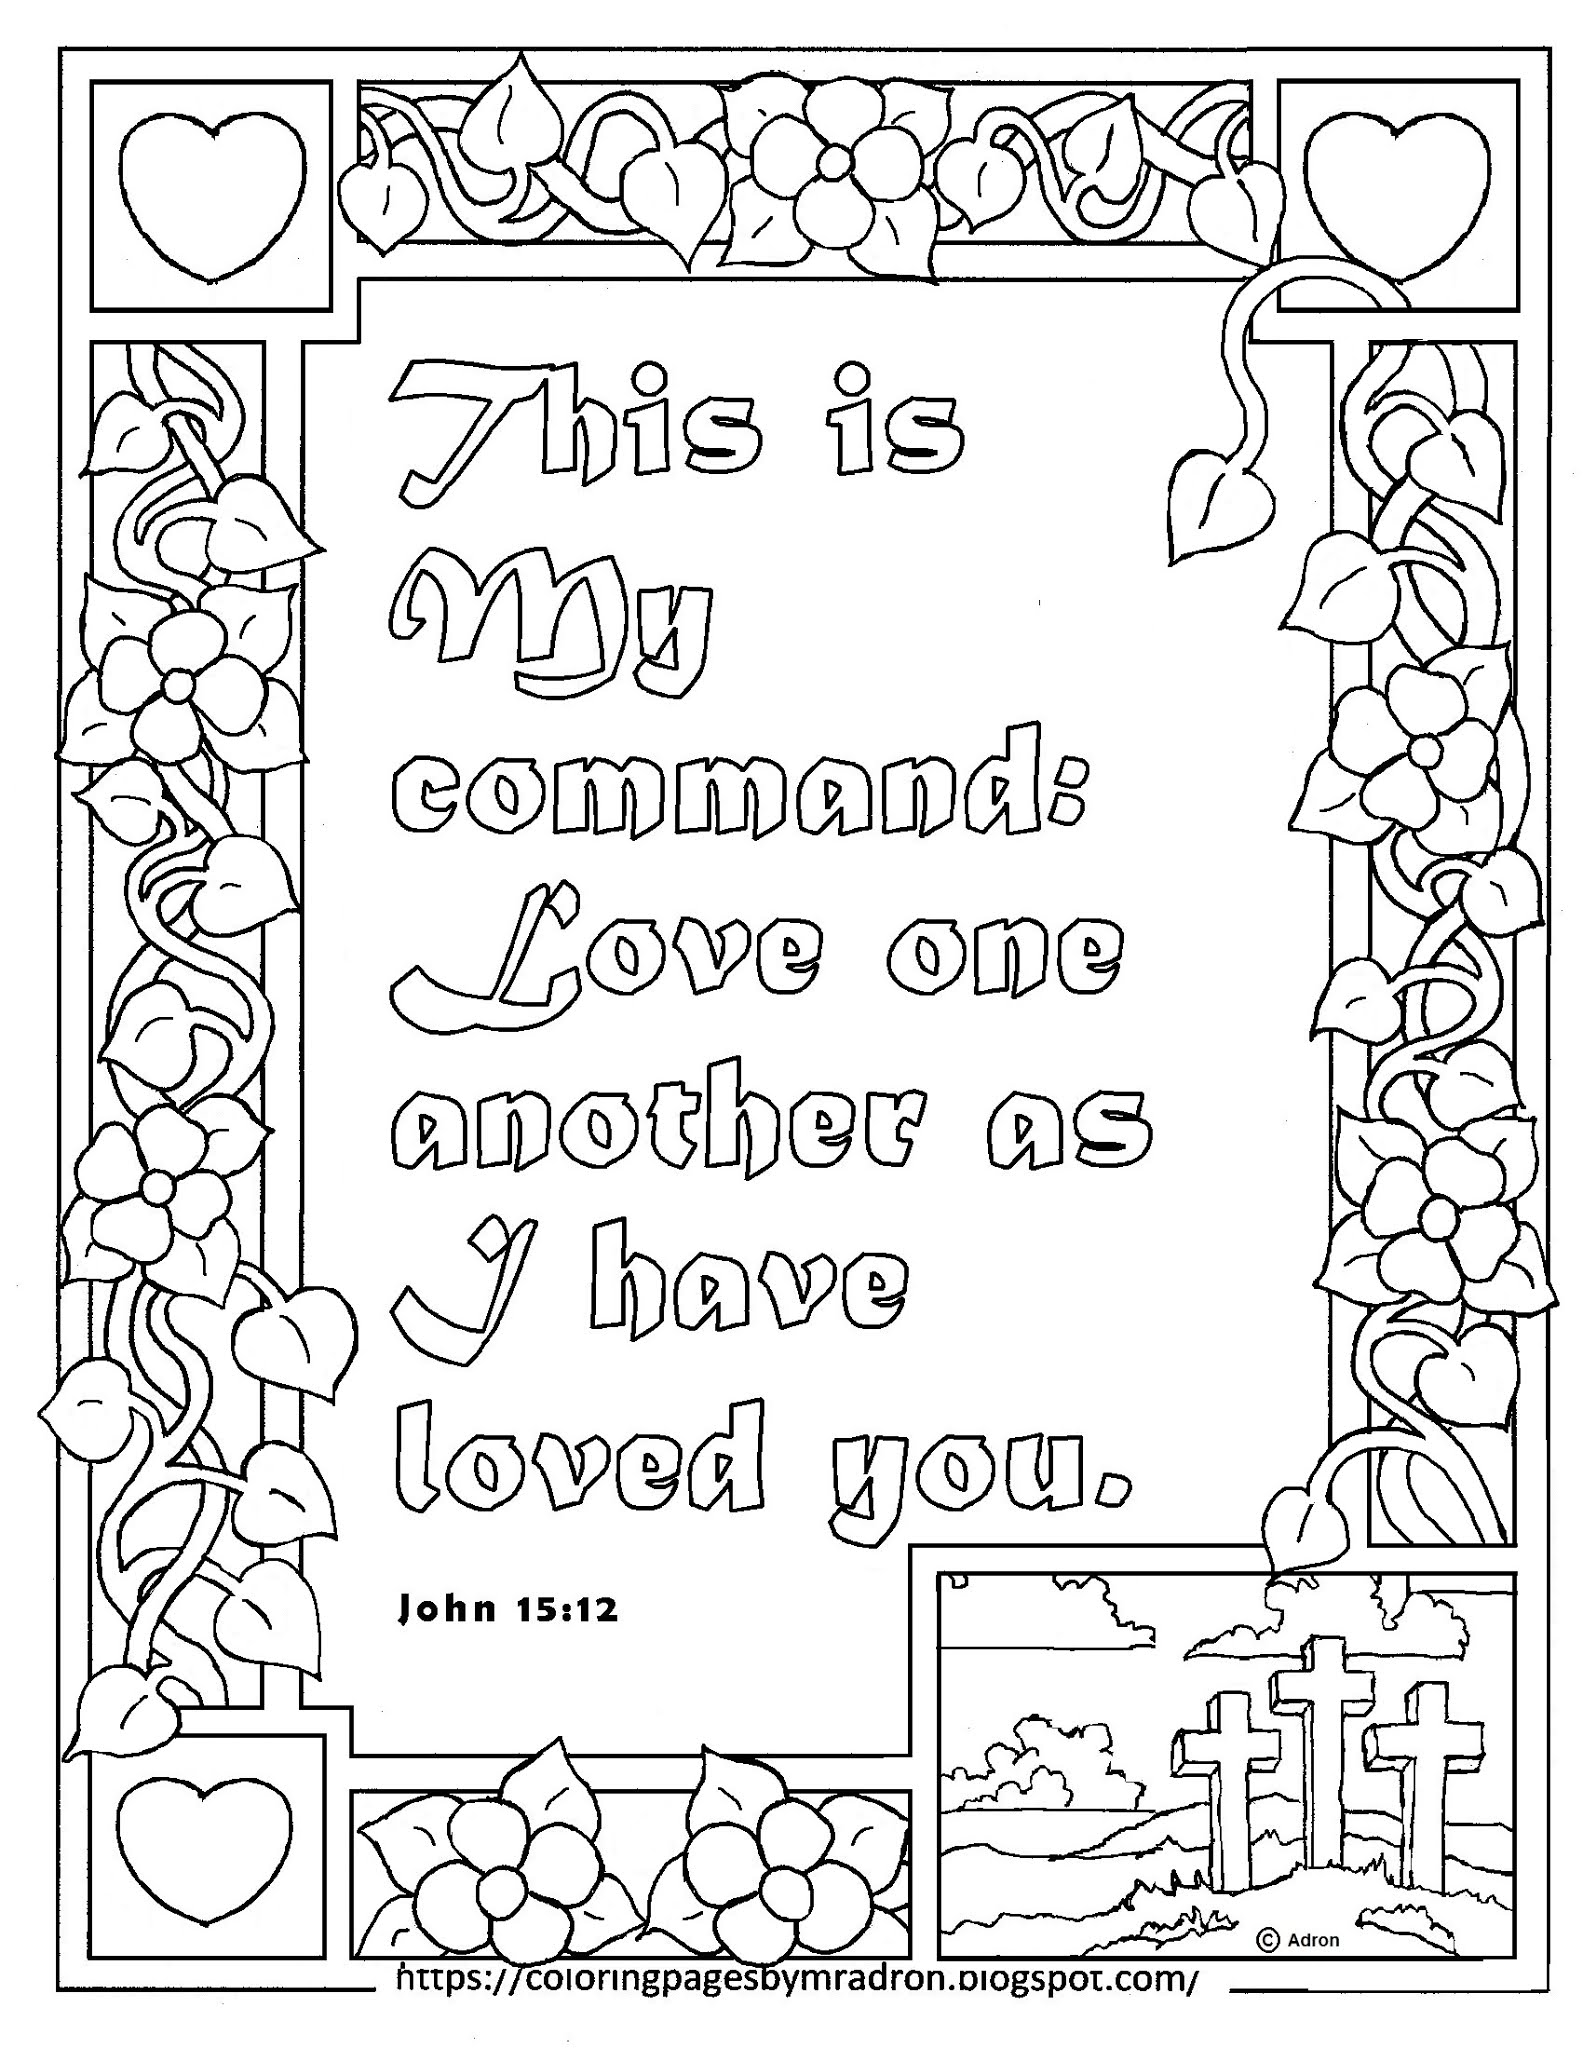 This is
My
command:
Love one
another as
I have
loved you.
John 15:12
© Adron
https://coloringpagesbymradron.blogspot.com/